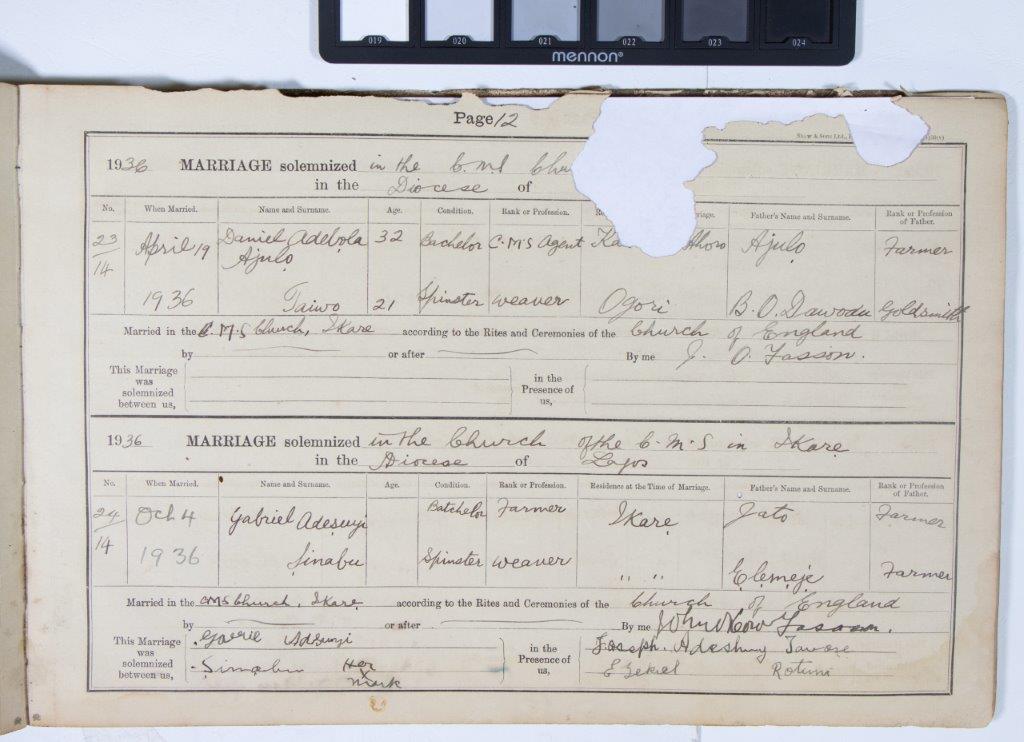 019 020 021 022 023 024
mennon®
Page 12
1936 MARRIAGE solemnized in the C.M.S
in the Diocese of
No. When Married. Name and Surname. Age. Condition. Rank or Profession. Father's Name and Surname. Rank or Profession of Father.
23/14 April 19 Daniel Adebola 32 Bachelor C.M.S Agent Ajulọ Farmer
Ajulọ
1936 Taiwo 21 Spinster weaver Ogori B. O. Dawodu Goldsmith
Married in the C.M.S Church, Ikarẹ according to the Rites and Ceremonies of the Church of England
by or after By me J. O. Fasson.
This Marriage was solemnized between us, in the Presence of us,
1936 MARRIAGE solemnized in the Church of the C.M.S in Ikarẹ
in the Diocese of Lagos
No. When Married. Name and Surname. Age. Condition. Rank or Profession. Residence at the Time of Marriage. Father's Name and Surname. Rank or Profession of Father.
24/14 Oct 4 Gabriel Adeṣuyi Batchelor Farmer Ikarẹ Jato Farmer
1936 Ṣinabu Spinster weaver " " Ẹlẹmẹjẹ Farmer
Married in the CMS Church, Ikarẹ according to the Rites and Ceremonies of the Church of England
by or after By me
This Marriage was solemnized between us, in the Presence of us, Joseph
Her
mark Rotimi